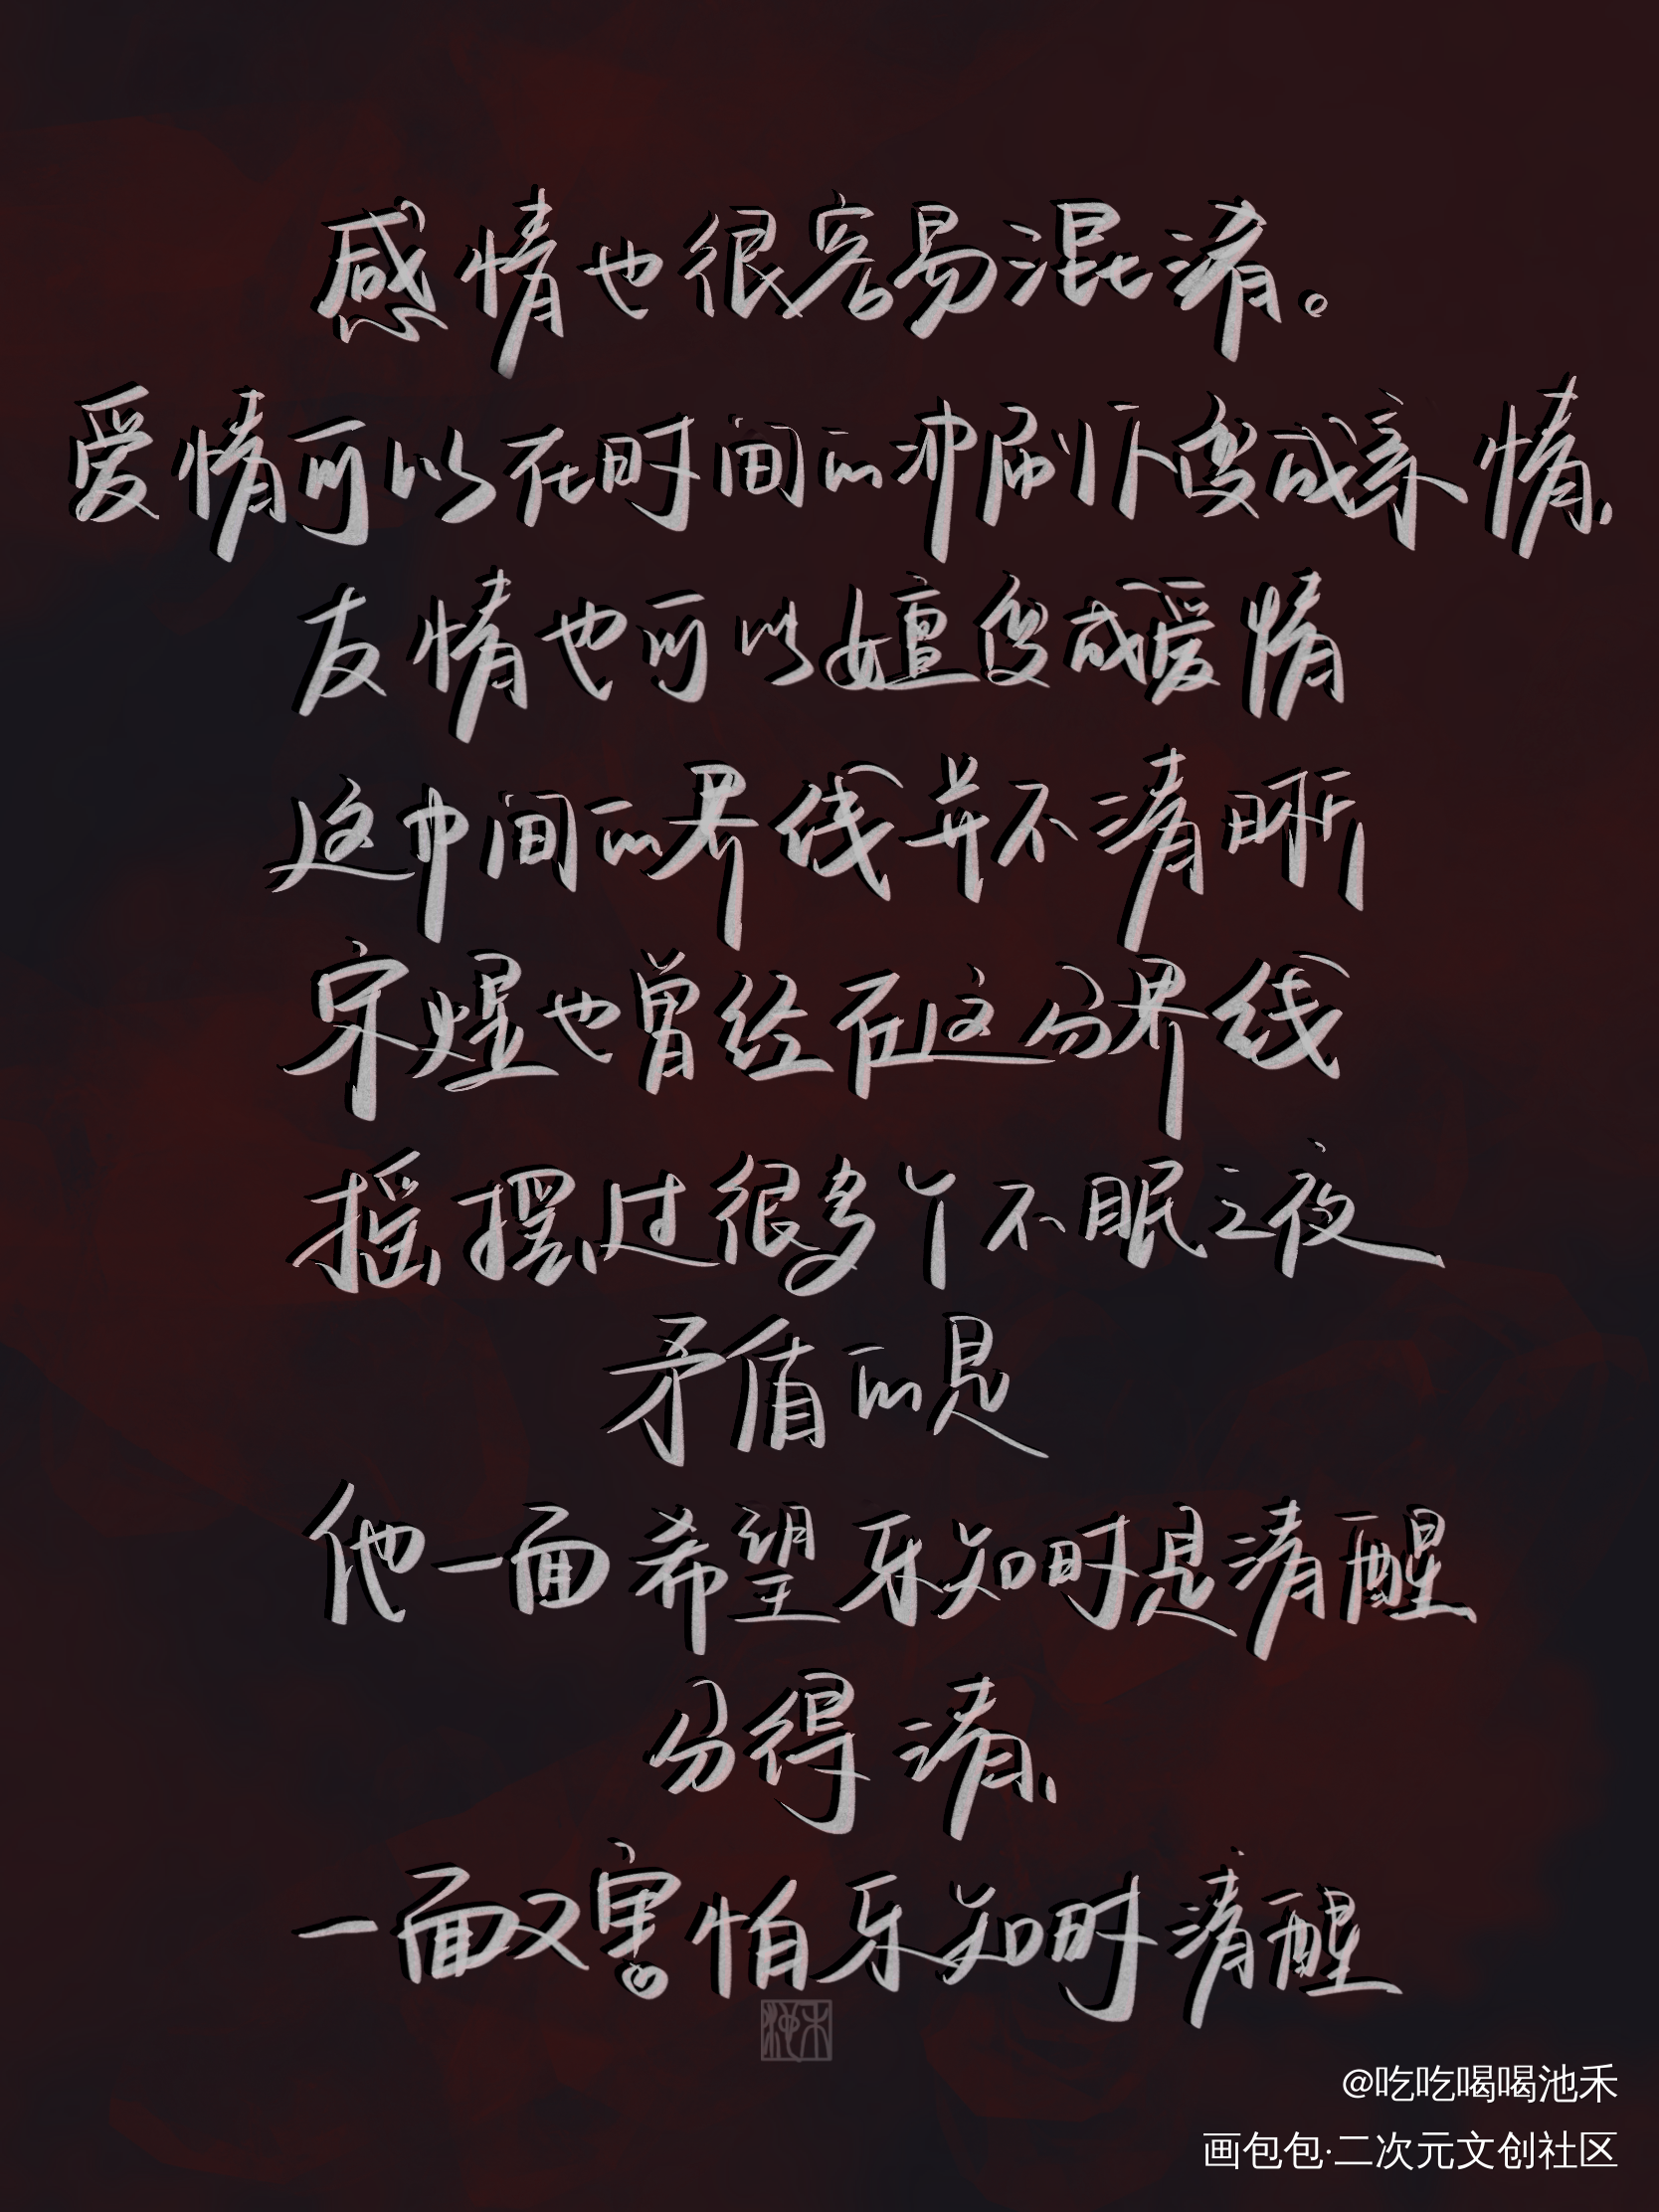 感情也很容易混淆。
爱情可以在时间的冲刷下变成亲情,
友情也可以嬗变成爱情
这中间的界线并不清晰
宋煜也曾经在这分界线
摇摆过很多个不眠之夜
矛盾的是
他一面希望乐知时是清醒
分得清,
一面又害怕乐知时清醒
池禾
@吃吃喝喝池禾
画包包·二次元文创社区